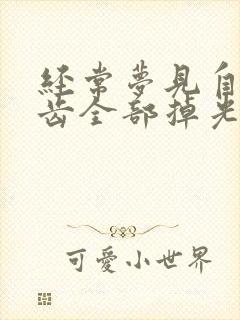 經常夢見自
齒全部掉光
可愛小世界